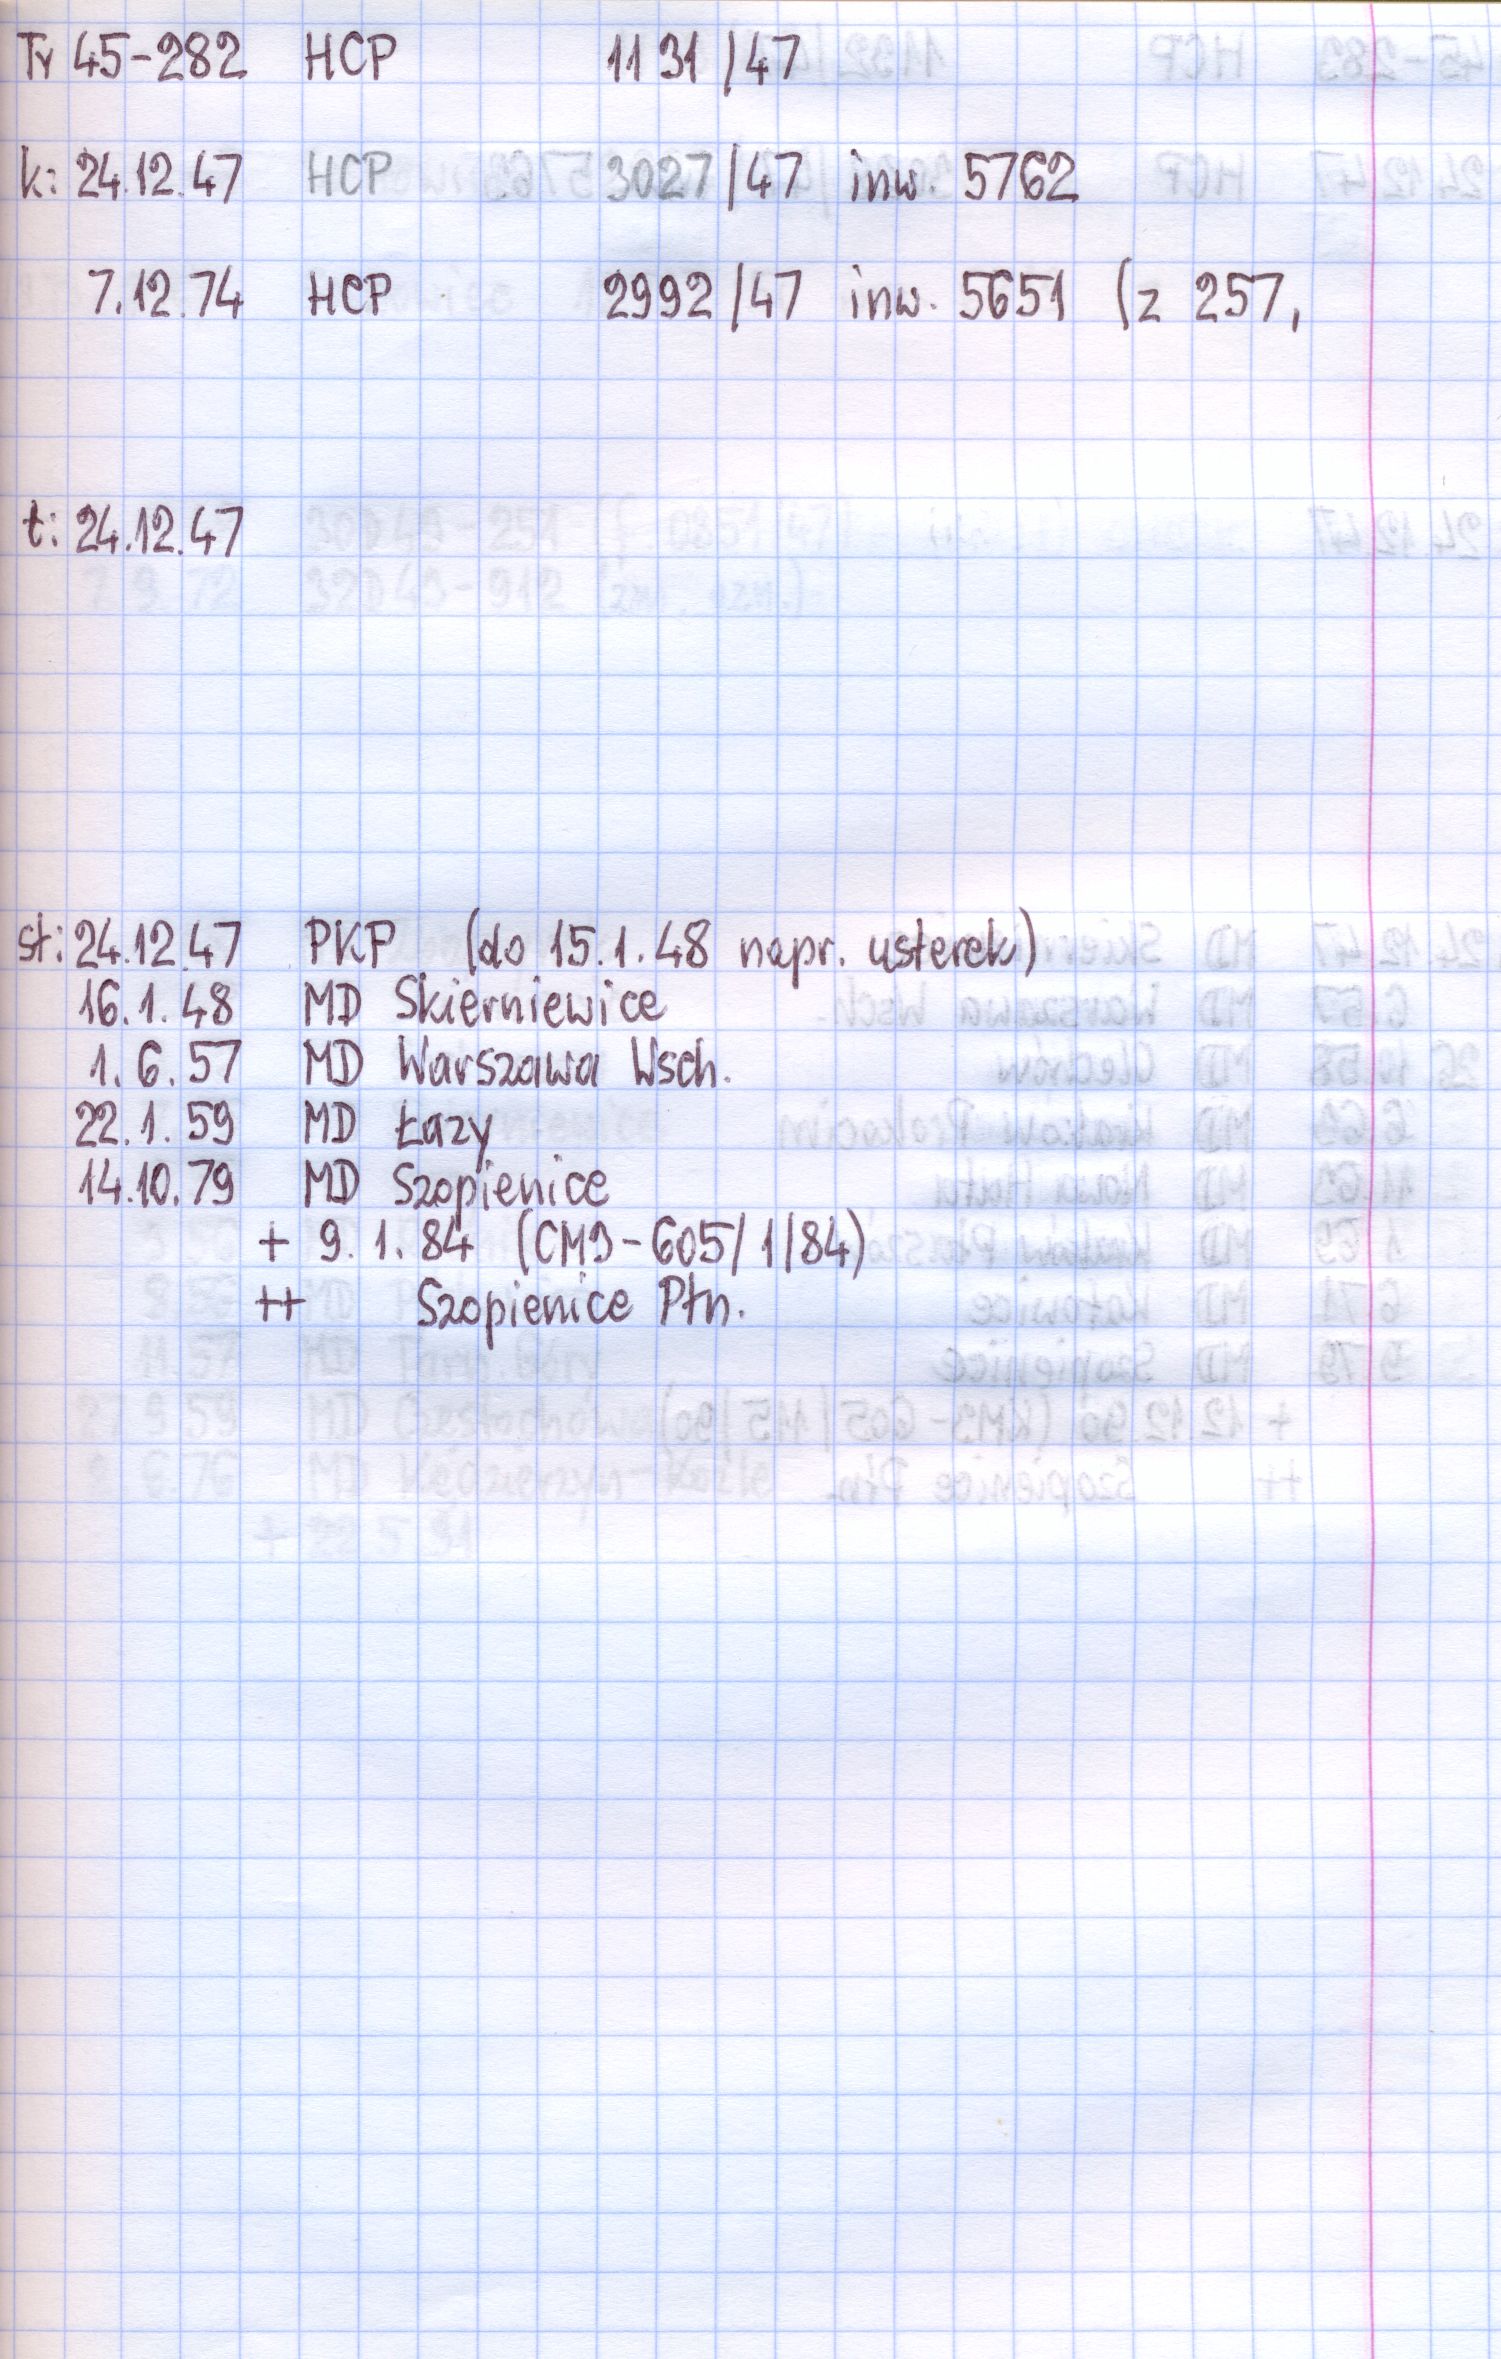 Ty 45-282 HCP 1131/47
k: 24.12.47 HCP 3027/47 inw. 5762
7.12.74 HCP 2992/47 inw. 5651 (z 257,
t: 24.12.47
st: 24.12.47 PKP (do 15.1.48 napr. usterek)
16.1.48 MD Skierniewice
1.6.57 MD Warszawa Wsch.
22.1.59 MD Łazy
14.10.79 MD Szopienice
+ 9.1.84 (CM9-605/1/84)
++ Szopienice Płn.